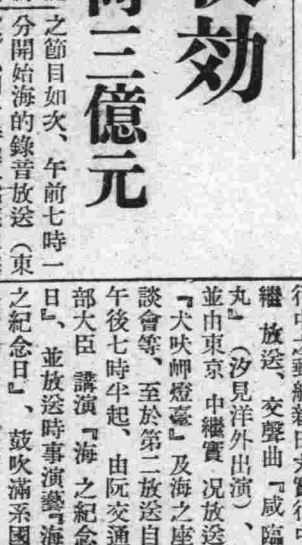 効
三億元
之節目如次、午前七時一
分開始海的錄音放送(東
繼 放送、交聲曲『咸臨
丸』(汐見洋外出演)、
並由東京 中繼實 况放送
『犬吠岬燈臺』及海之座
談會等、至於第二放送自
午後七時半起、由阮交通
部大臣 講演『海 之紀念
日』、並放送時事演藝『海
之紀念日』、鼓吹滿系國